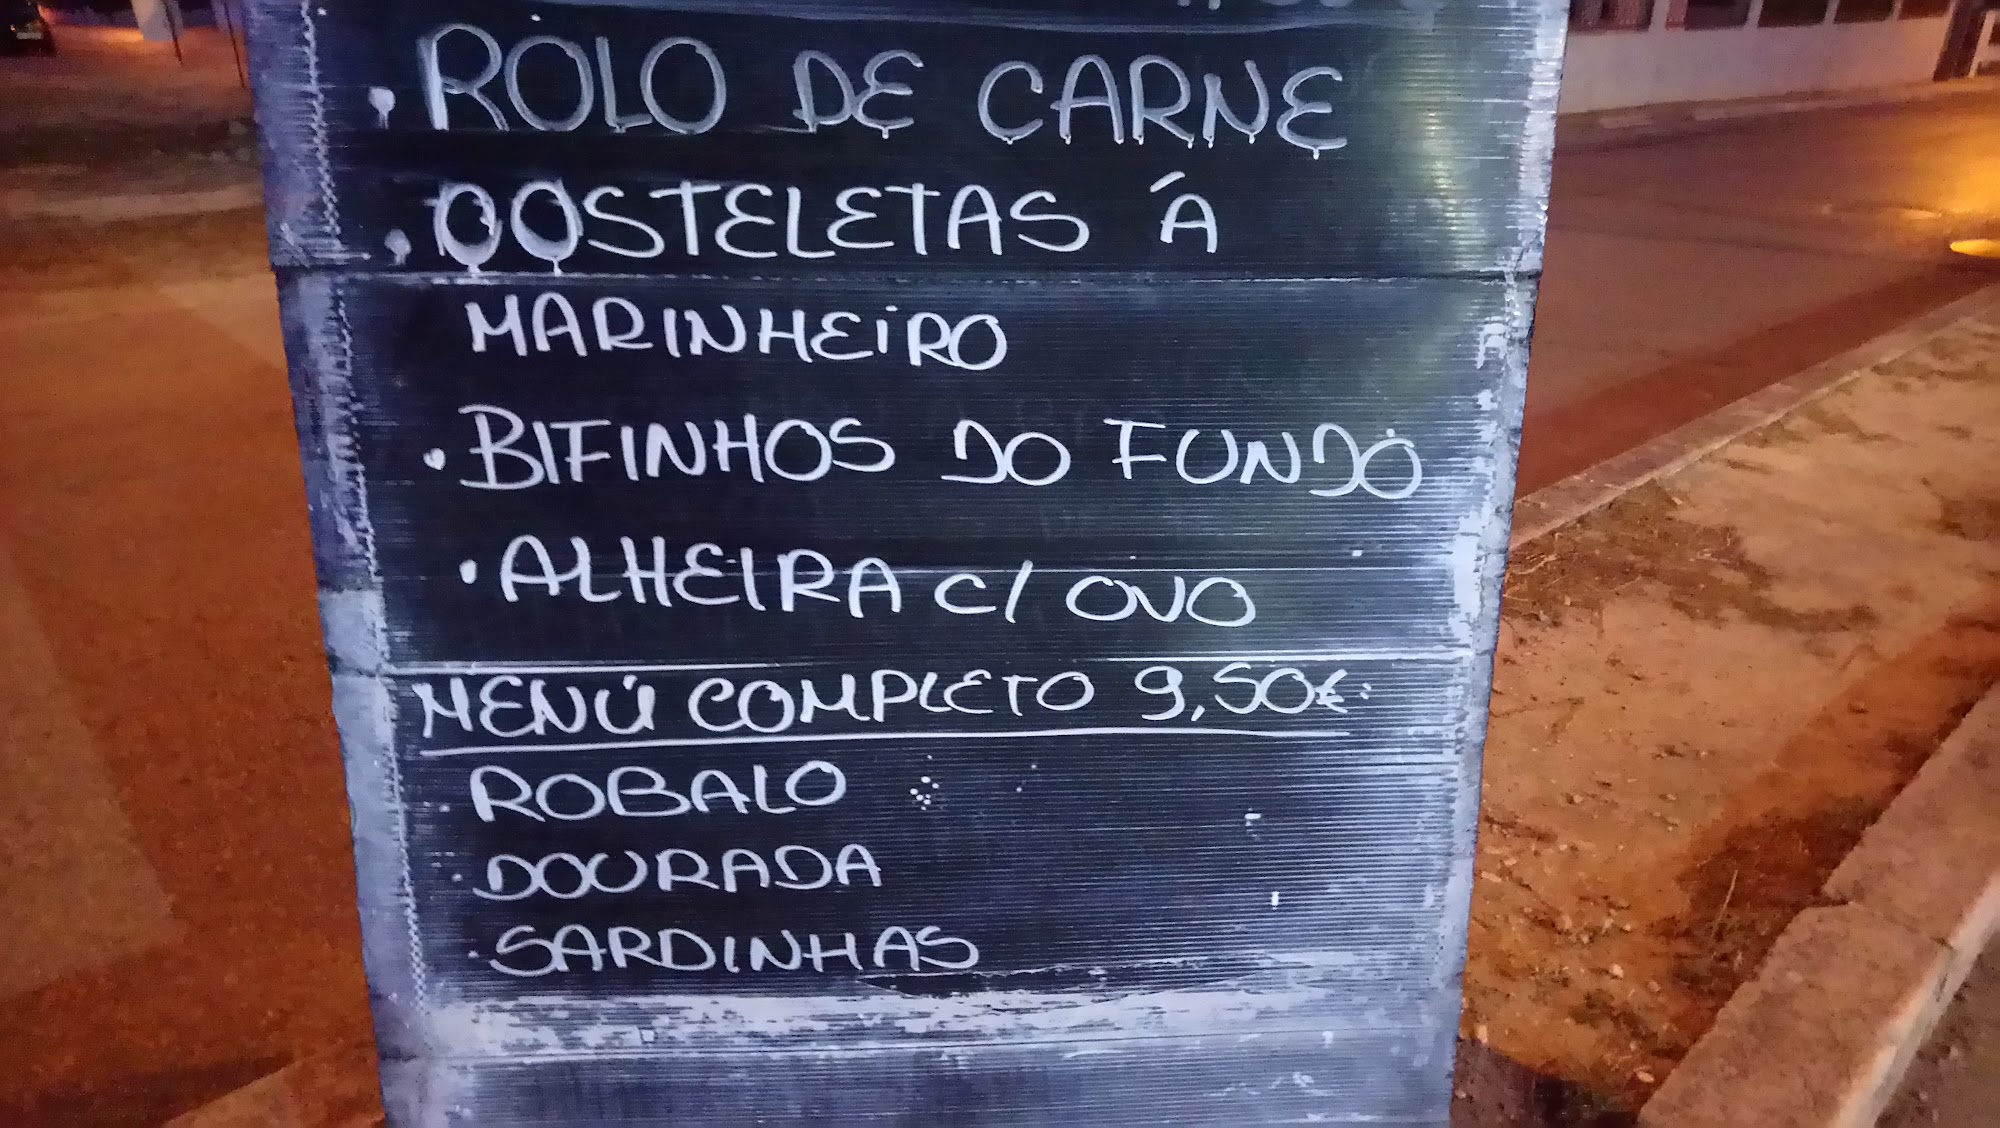 . ROLO DE CARNE
. COSTELETAS Á
MARINHEIRO
. BIFINHOS DO FUNDO
. ALHEIRA C/ OVO
MENÚ COMPLETO 9,50€:
. ROBALO
. DOURADA
. SARDINHAS